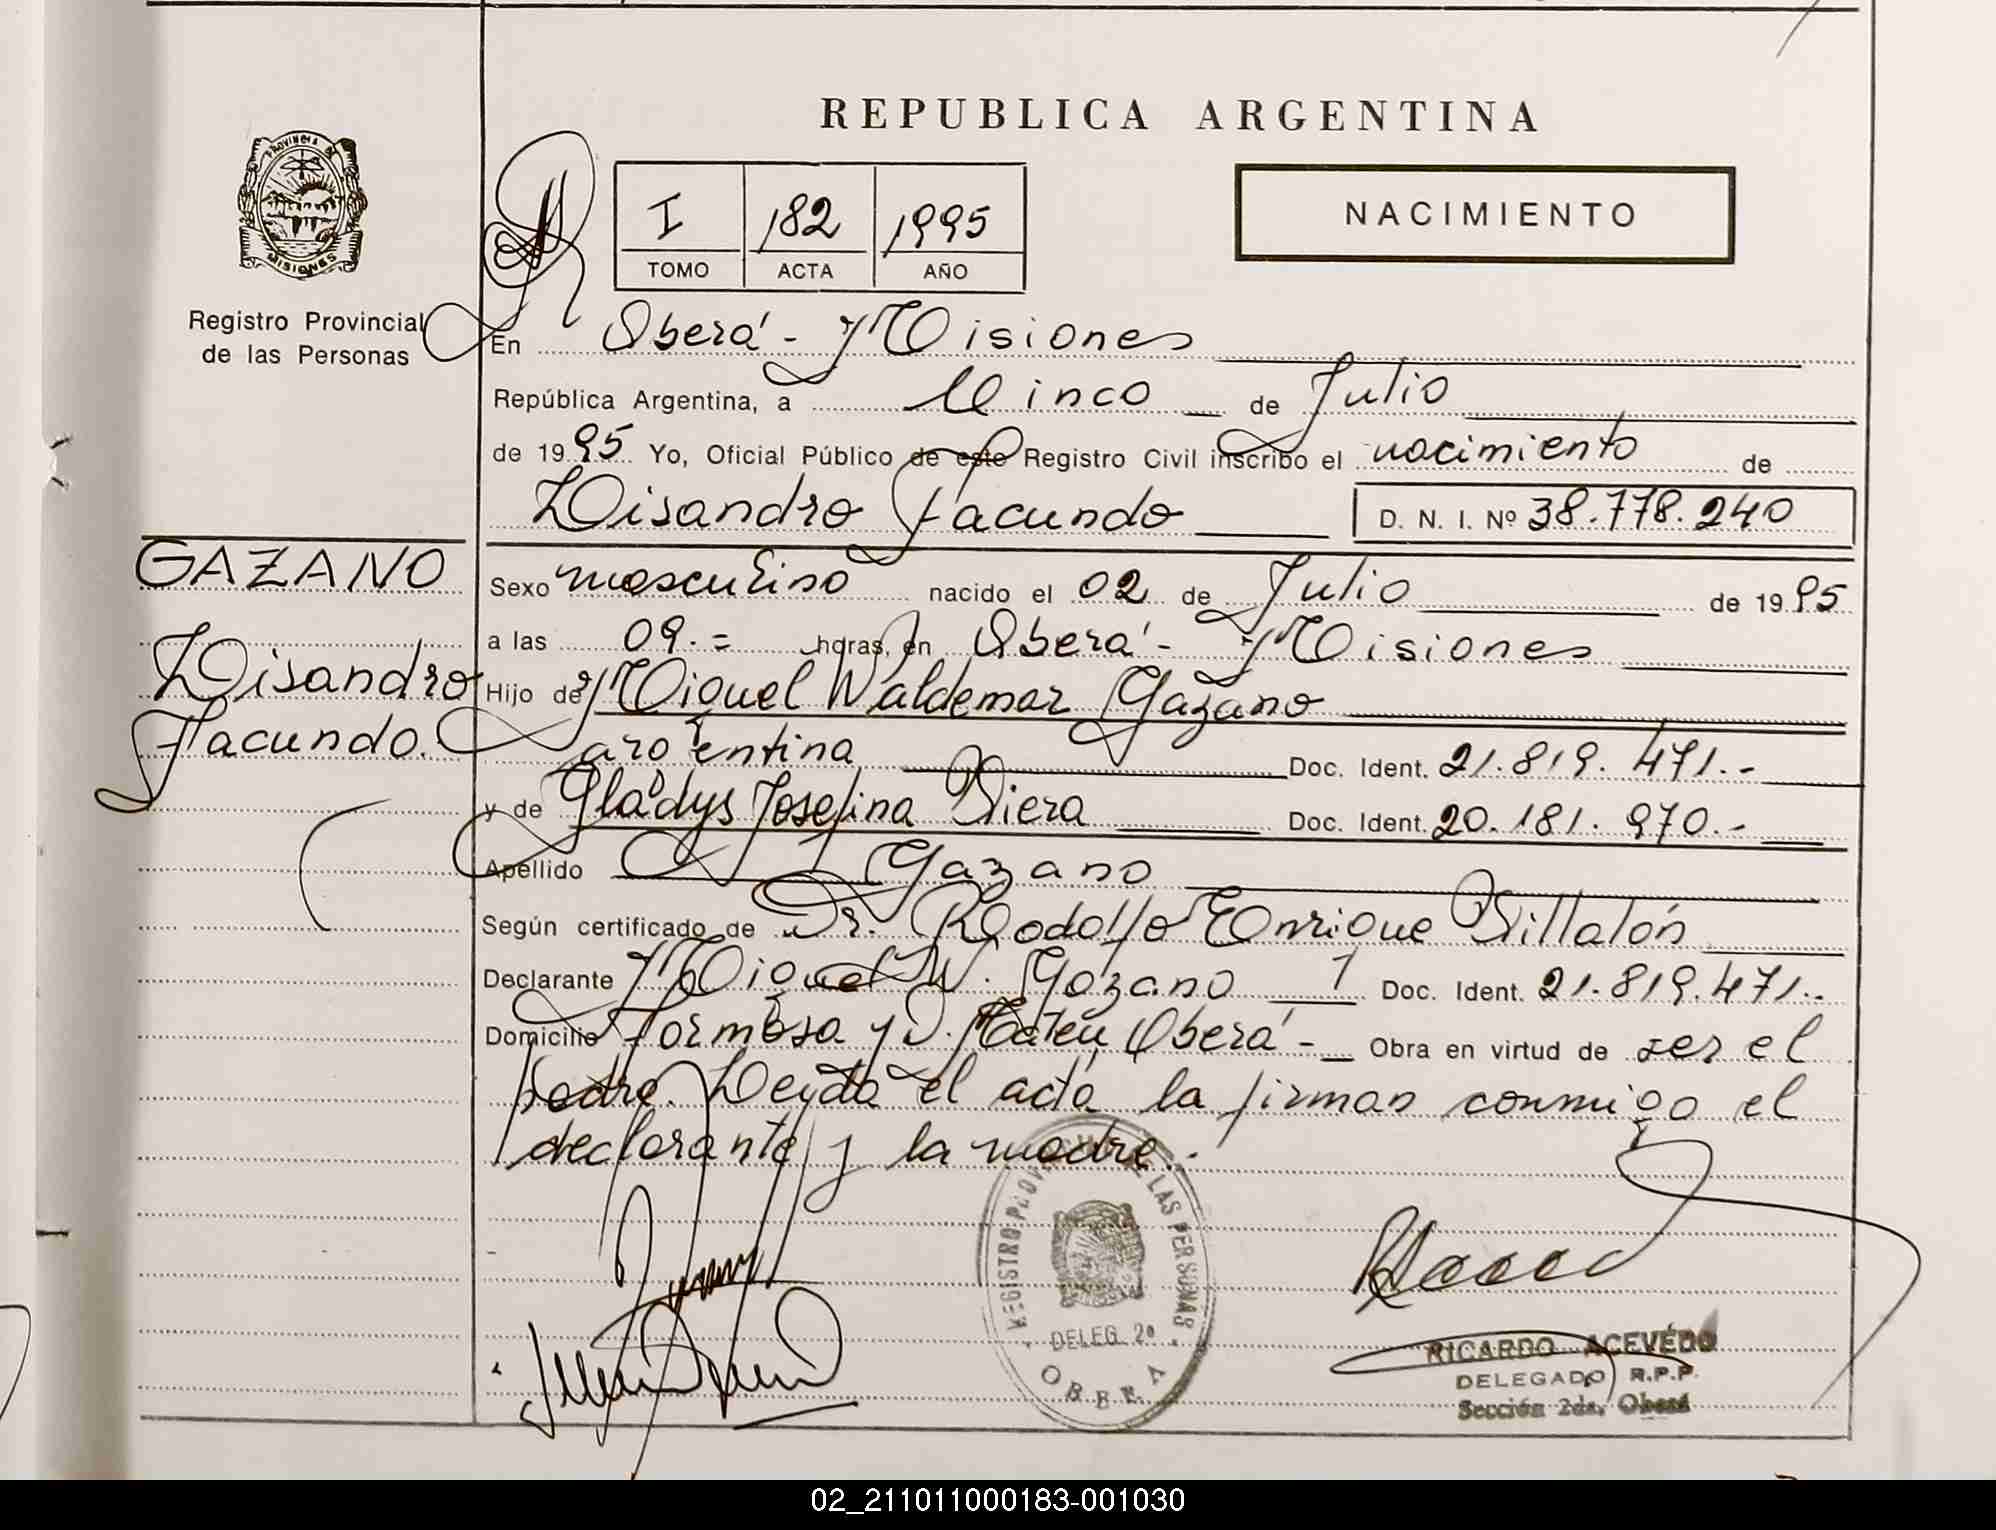 REPUBLICA ARGENTINA
PROVINCIA DE
MISIONES
Registro Provincial
de las Personas
I 182 1995
TOMO ACTA AÑO
NACIMIENTO
En Oberá - Misiones
República Argentina, a Cinco de Julio
de 1995 Yo, Oficial Público de este Registro Civil inscribo el nacimiento de
Lisandro Facundo D. N. I. Nº 38.778.240
GAZANO
Lisandro
Facundo.
Sexo masculino nacido el 02 de Julio de 1995
a las 09.= horas, en Oberá - Misiones
Hijo de Miguel Waldemar Gazano
argentina Doc. Ident. 21.819.471.-
y de Gladys Josefina Viera Doc. Ident. 20.181.970.-
Apellido Gazano
Según certificado de Dr. Rodolfo Enrique Villalón
Declarante Miguel W. Gazano Doc. Ident. 21.819.471.-
Domicilio Formosa y D. Mateu Oberá - Obra en virtud de ser el
padre. Leyda el acta la firman conmigo el
declarante y la madre.-
REGISTRO DE LAS PERSONAS
DELEG. 2ª
OBERA
RICARDO ACEVEDO
DELEGADO R.P.P.
Sección 2da. Oberá
02_211011000183-001030